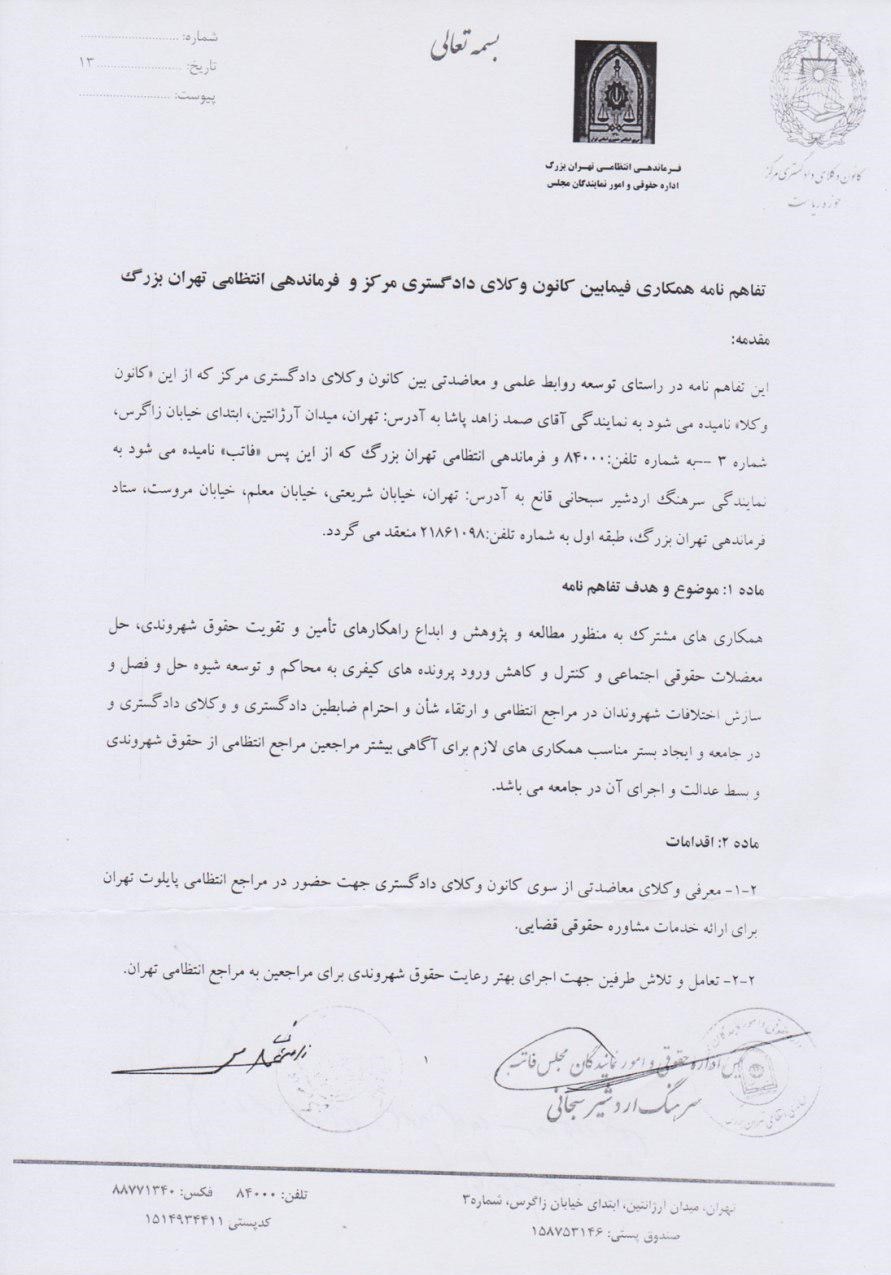 بسمه تعالی
شماره: ..........................
تاریخ: ...................... ۱۳
پیوست: ........................
فرماندهی انتظامی تهران بزرگ
اداره حقوقی و امور نمایندگان مجلس
کانون وکلای دادگستری مرکز
حوزه ریاست
تفاهم نامه همکاری فیمابین کانون وکلای دادگستری مرکز و فرماندهی انتظامی تهران بزرگ
مقدمه:
این تفاهم نامه در راستای توسعه روابط علمی و معاضدتی بین کانون وکلای دادگستری مرکز که از این «کانون
وکلا» نامیده می شود به نمایندگی آقای صمد زاهد پاشا به آدرس: تهران، میدان آرژانتین، ابتدای خیابان زاگرس،
شماره ۳ --به شماره تلفن:۸۴۰۰۰ و فرماندهی انتظامی تهران بزرگ که از این پس «فاتب» نامیده می شود به
نمایندگی سرهنگ اردشیر سبحانی قانع به آدرس: تهران، خیابان شریعتی، خیابان معلم، خیابان مروست، ستاد
فرماندهی تهران بزرگ، طبقه اول به شماره تلفن:۲۱۸۶۱۰۹۸ منعقد می گردد.
ماده ۱: موضوع و هدف تفاهم نامه
همکاری های مشترک به منظور مطالعه و پژوهش و ابداع راهکارهای تأمین و تقویت حقوق شهروندی، حل
معضلات حقوقی اجتماعی و کنترل و کاهش ورود پرونده های کیفری به محاکم و توسعه شیوه حل و فصل و
سازش اختلافات شهروندان در مراجع انتظامی و ارتقاء شأن و احترام ضابطین دادگستری و وکلای دادگستری و
در جامعه و ایجاد بستر مناسب همکاری های لازم برای آگاهی بیشتر مراجعین مراجع انتظامی از حقوق شهروندی
و بسط عدالت و اجرای آن در جامعه می باشد.
ماده ۲: اقدامات
۲-۱- معرفی وکلای معاضدتی از سوی کانون وکلای دادگستری جهت حضور در مراجع انتظامی پایلوت تهران
برای ارائه خدمات مشاوره حقوقی قضایی.
۲-۲- تعامل و تلاش طرفین جهت اجرای بهتر رعایت حقوق شهروندی برای مراجعین به مراجع انتظامی تهران.
رئیس اداره حقوقی و امور نمایندگان مجلس فاتب
سرهنگ اردشیر سبحانی
۱
تهران، میدان آرژانتین، ابتدای خیابان زاگرس، شماره۳
صندوق پستی: ۱۵۸۷۵۳۱۴۶
تلفن: ۸۴۰۰۰ فکس: ۸۸۷۷۱۳۴۰
کدپستی ۱۵۱۴۹۳۴۴۱۱